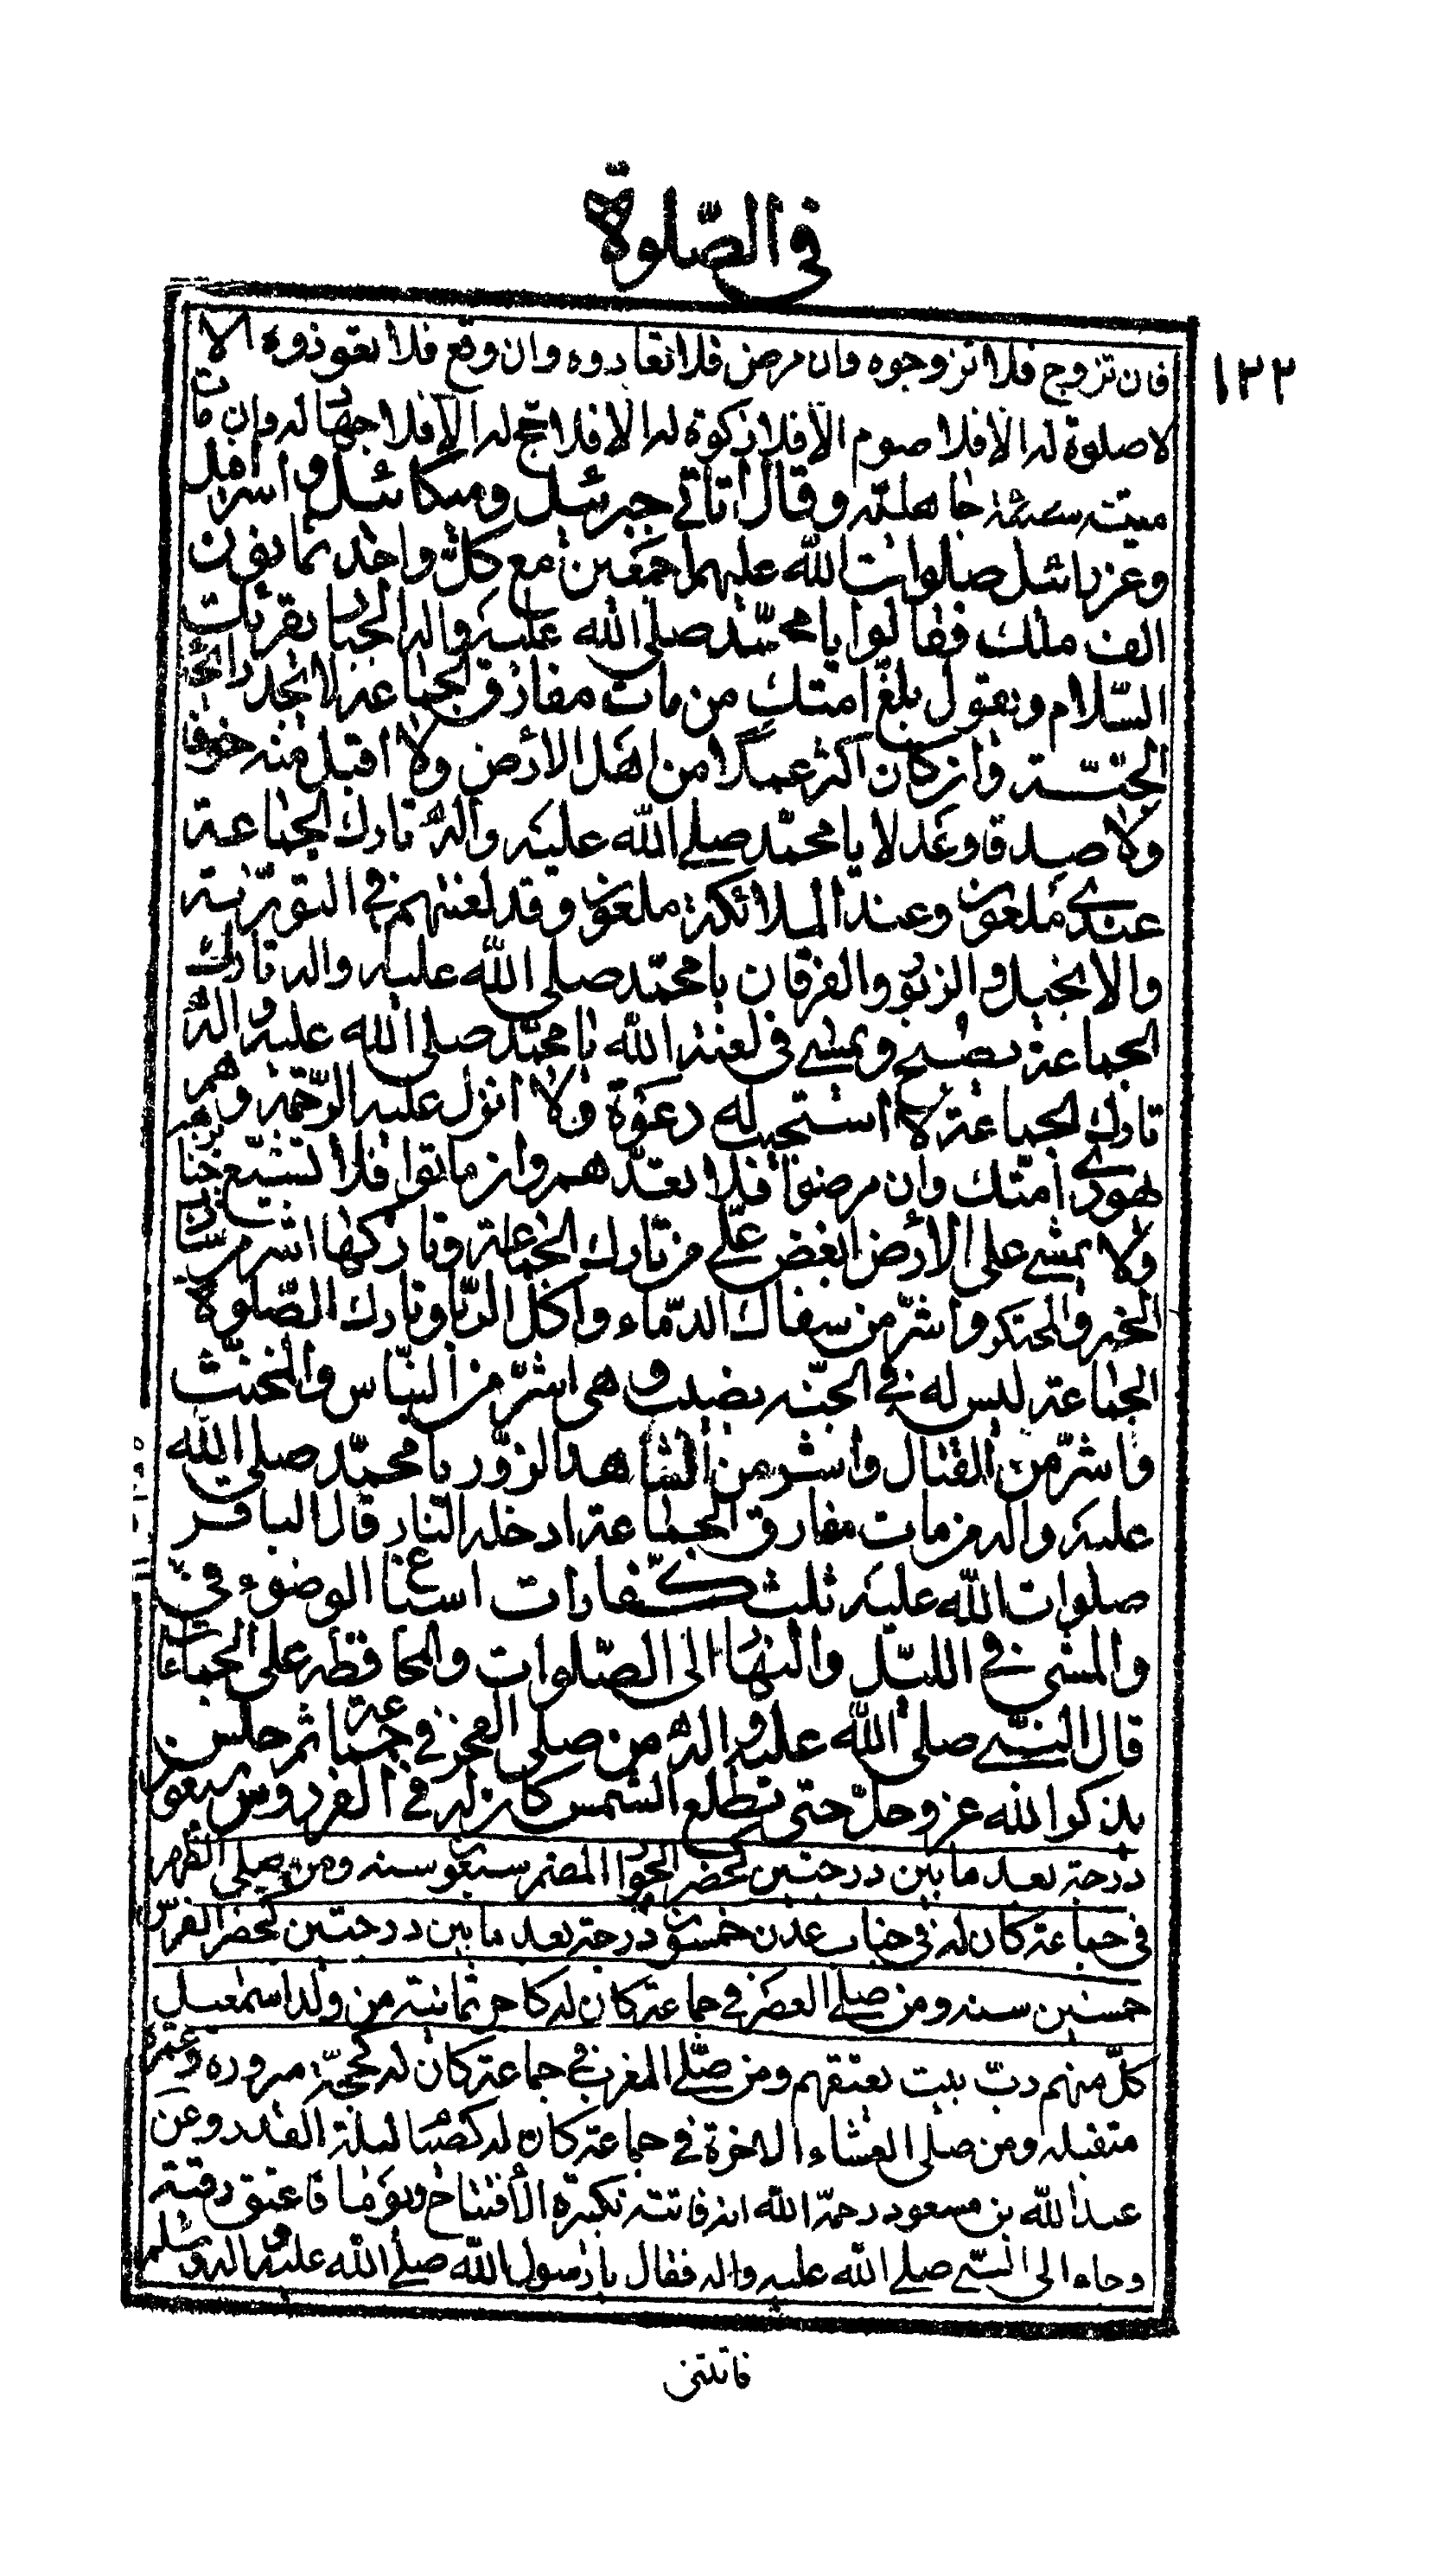 في الصّلوة
١٣٢
فان تزوج فلا تزوجوه وان مرض فلا تعادوه وان وقع فلا تعوذوه الا
لا صلوة له الا فلا صوم الا فلا زكوة له الا فلا حج له الا فلا جهاد له وان مات
ميتته جاهليّه وقال اتاني جبرئيل وميكائيل واسرافيل
وعزرائيل صلوات الله عليهم اجمعين مع كلّ واحد ثمانون
الف ملك فقالوا يا محمّد صلى الله عليه واله الجبار يقرئك
السّلام ويقول بلّغ امتك من مات مفارق الجماعة لا يجد رائحة
الجنّة وان كان اكثر عملا من اهل الارض ولا اقبل منه حرفا
ولا صدقا وعدلا يا محمّد صلى الله عليه واله تارك الجماعة
عندي ملعون وعند الملائكة ملعون وقد لعنتهم في التورية
والانجيل والزبور والفرقان يا محمّد صلى الله عليه واله تارك
الجماعة يصبح ويمشي في لعنة الله يا محمّد صلى الله عليه واله
تارك الجماعة لا استجيب له دعوة ولا انزل عليه الرّحمة وهم
يهودي امتك وان مرضوا فلا تعدّهم وان ماتوا فلا تشيّع جنازهم
ولا يمشي على الارض ابغض علّي من تارك الجماعة وتاركها اشر من شارب
الخمر والمحتكر واشرّ من سفاك الدّماء واكل الرّبا وتارك الصّلوة
الجماعة ليس له في الجنّه نصيب وهي اشرّ من النبّاس والمخنّث
واشرّ من القتال واشر من الشاهد الزّور يا محمّد صلى الله
عليه واله من مات مفارق الجماعة ادخله النّار قال الباقر
صلوات الله عليه ثلث كفّارات اسباغ الوضوء في
والمشي في الليّل والنهار الى الصّلوات والمحافظه على الجماعات
قال النبّي صلى الله عليه واله من صلى الفجر في جماعة ثم جلس
يذكر الله عز وجلّ حتى تطلع الشمس كان له في الفردوس سبعون
درجة بعد ما بين درجتين كحضر الجواد المضمر سبعون سنه ومن صلي الظهر
في جماعة كان له في جنات عدن خمسون درجة بعد ما بين درجتين كحضر الفرس
خمسين سنه ومن صلي العصر في جماعة كان له كاجر ثمانية من ولد اسمعيل
كلّ منهم ربّ بيت يعتقهم ومن صلّي المغرب في جماعة كان له كحجّة مبروره وعمرة
متقبله ومن صلى العشاء الاخرة في جماعة كان له كقيام ليلة القدر وعن
عبد الله بن مسعود رحمه الله انه فاتته تكبيرة الافتتاح يوما فاعتق رقبة
وجاء الى النبّي صلي الله عليه واله فقال يا رسول الله صلي الله عليه واله وسلم
فاتتني